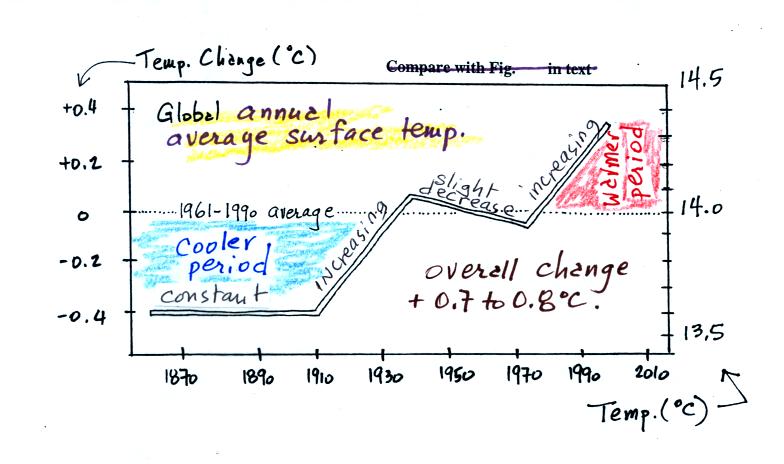 Temp. Change (°C)
Compare with Fig. in text
14.5
+0.4
Global annual
average surface temp.
increasing
warmer
period
+0.2
slight
decrease
0
1961-1990 average
14.0
increasing
cooler
period
-0.2
constant
overall change
+ 0.7 to 0.8°C.
-0.4
13,5
1870 1890 1910 1930 1950 1970 1990 2010
Temp. (°C)